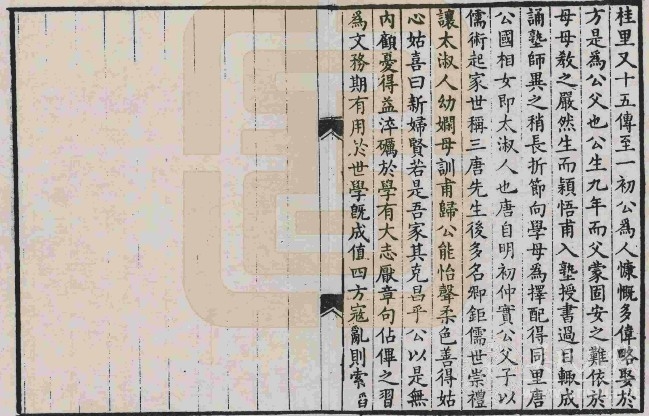 桂里又十五傳至一初公爲人慷慨多偉略娶於
方是爲公父也公生九年而父蒙固安之難依於
母母教之嚴然生而穎悟甫入塾授書過目輙成
誦塾師異之稍長折節向學母爲擇配得同里唐
公國相女即太淑人也唐自明初仲實公父子以
儒術起家世稱三唐先生後多名卿鉅儒世崇禮
讓太淑人幼嫻母訓甫歸公能怡聲柔色善得姑
心姑喜曰新婦賢若是吾家其克昌乎公以是無
内顧憂得益淬礪於學有大志厭章句佔僤之習
爲文務期有用於世學旣成值四方寇亂則索